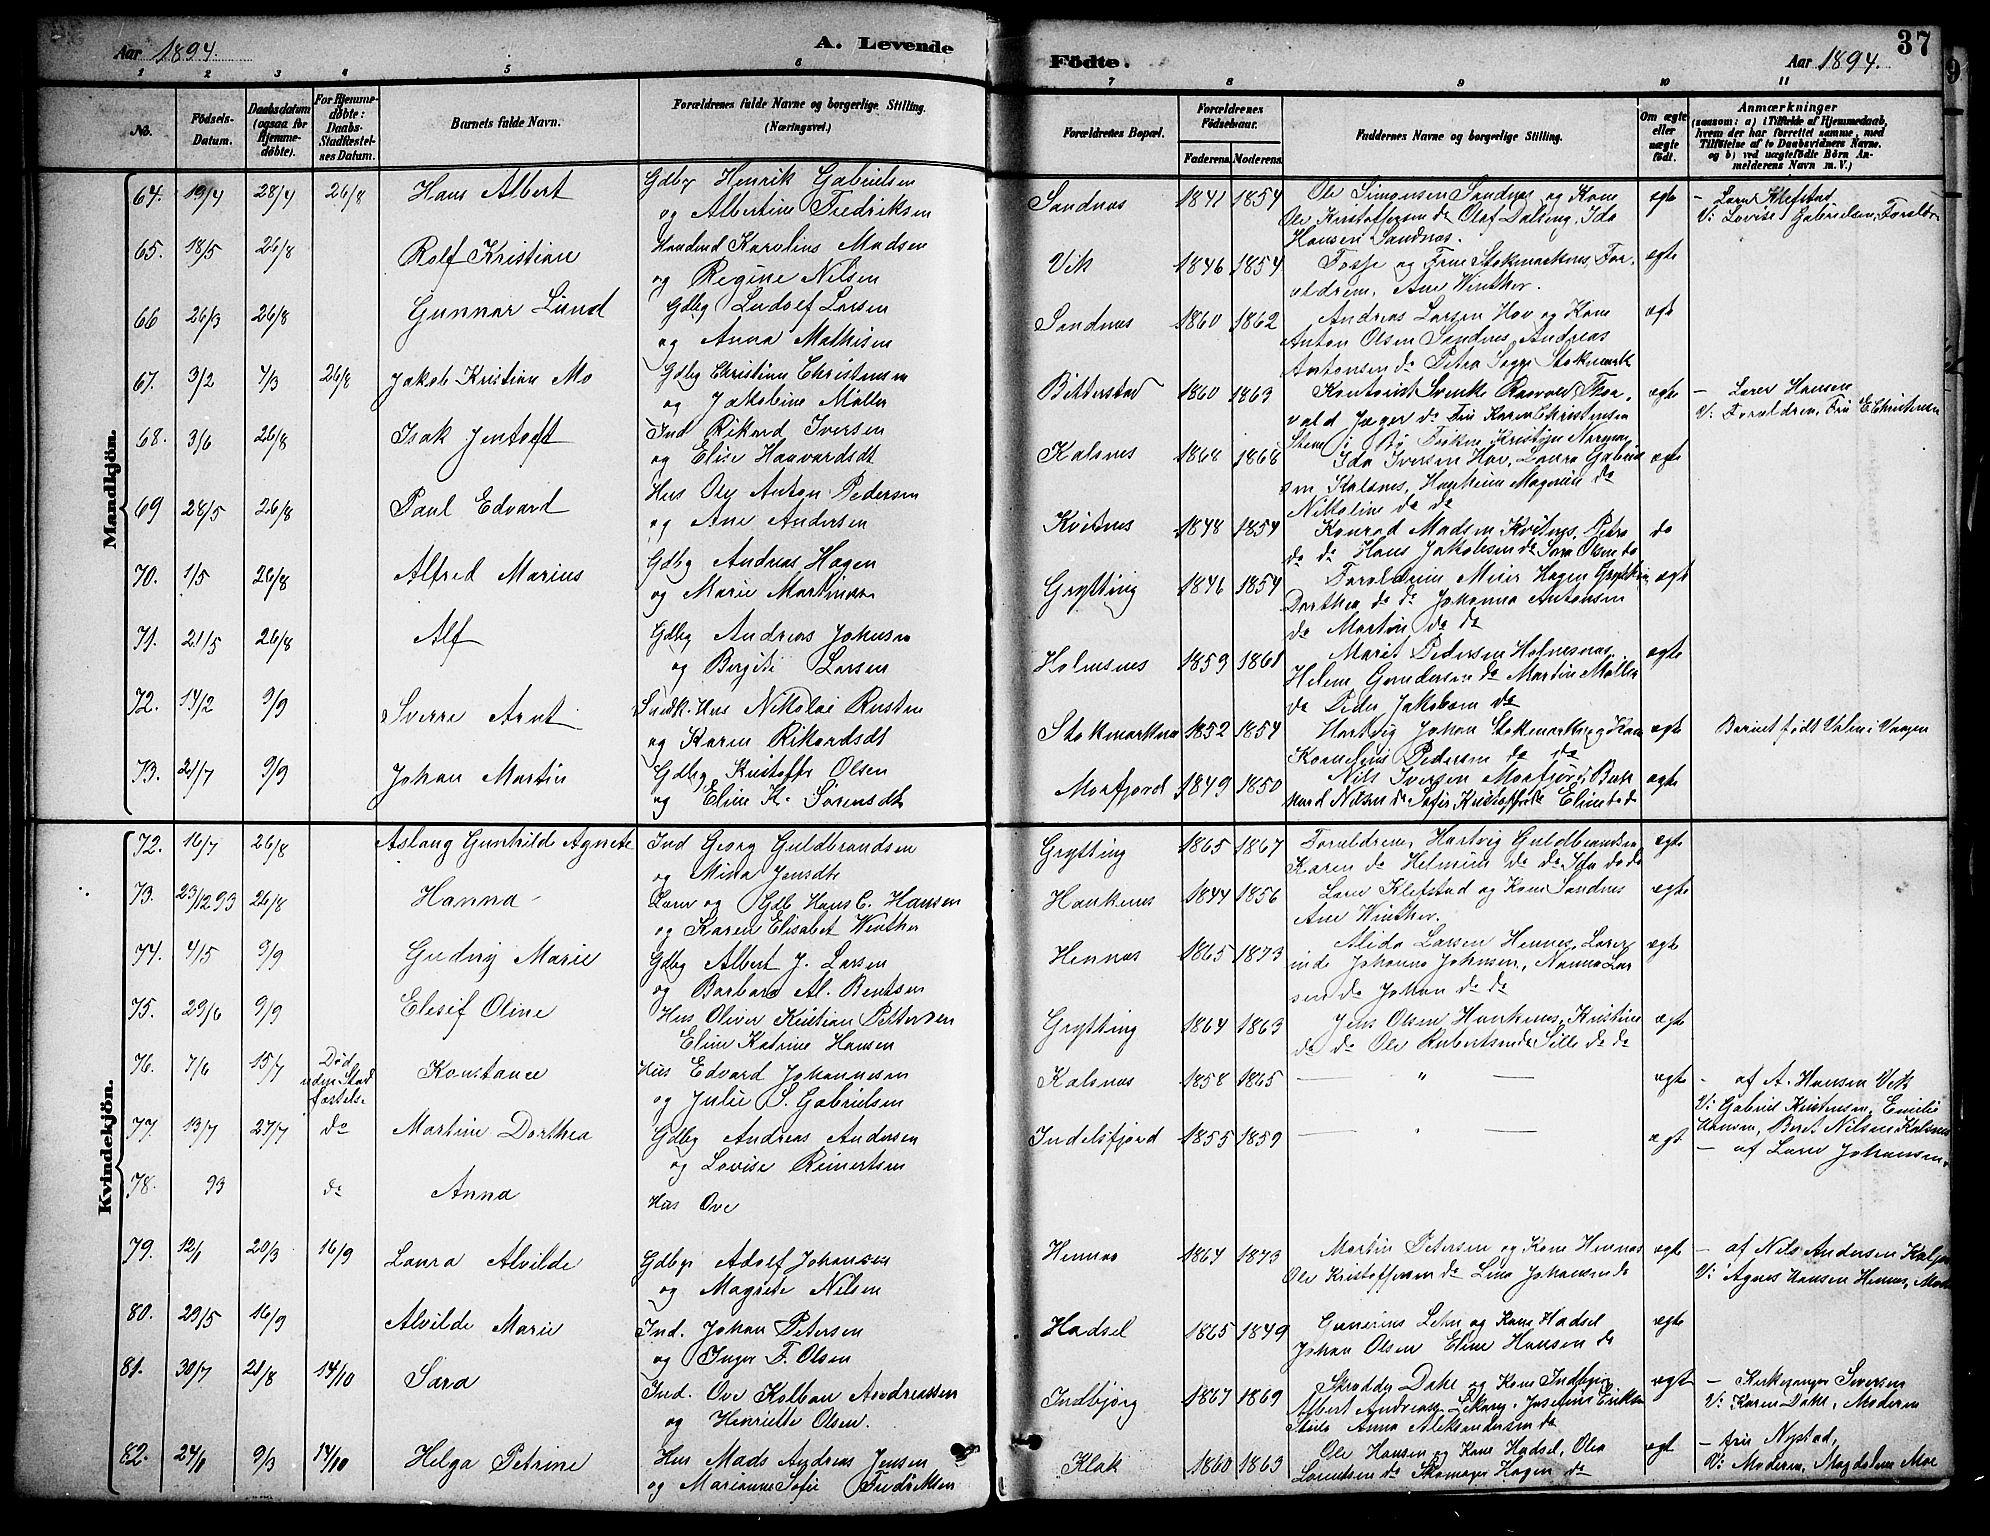 Aar 1894. A. Levende
Födte. Aar 1894. 37
1 2 3 4 5 6 7 8 9 10 11
No. Födsels-Datum. Daabsdatum (ogsaa for Hjemme-döbte). For Hjemme-döbte: Daabs-Stadfæstel-ses Datum. Barnets fulde Navn. Forældrenes fulde Navne og borgerlige Stilling. (Næringsvei.)
Forældrenes Bopæl. Forældrenes Födselsaar. Faderens. Moderens. Faddernes Navne og borgerlige Stilling. Om ægte eller uægte födt. Anmærkninger (saasom: a) i Tilfælde af Hjemmedaab, hvem der har forrettet samme, med Tilföielse af to Daabsvidners Navne, og b) ved uægtefödte Börn An-melderens Navn m. V.)
Mandkjön.
64. 19/4 28/4 26/8 Hans Albert Gdbg Henrik Gabrielsen
og Albertine Fredriksen
Sandnes 1841 1854 Ole Simonsen Sandnes og Kone
Ole Kristoffersen do Olaf Dalsing, Ida
Hansen Sandnes.
ægte – Lærer Klefstad
V: Lovise Gabrielsen, Foraldr
65. 18/5 26/8 Rolf Kristian Handlsd Karolius Madsen
og Regine Nilsen
Vik 1846 1854 Fosse og Frue Stokmarknes, For-
ældrene, Ane Winther. ægte
66 26/3 26/8 Gunnar Lund Gdbg Ludolf Larsen
og Anna Mathisen
Sandnes 1860 1862 Andreas Larsen Hov og Kone
Anton Olsen Sandnes Andreas
Antonsen do Petra Stokmark
ægt
67. 3/2 4/3 26/8 Jakob Kristian Mo Gdbg Christine Christensen
og Jakobine Møller
Bitterstad 1860 1863 Kontorist Svenke Thor-
vald Jæger do Fru Karen Christensen
Stene i Bø Kristine
ægte – Lærer Hansen
V: Forældrene, Fru E. Christensen
68. 3/6 26/8 Isak Jentoft Ind Rikard Iversen
og Elise Haavardsdt
Kalsnes 1868 1868 Ida Iversen Hov, Laura Gabriel
sen Kalsnes, Magnus do
Nikoline do do
ægte
69 28/5 26/8 Paul Edvard Hus Ole Anton Pedersen
og Ane Andersen
Kvitnes 1848 1854 Konrad Madsen Kvitnes, Petra
do do Hans Jakobsen do Sara Olsen do
do
70. 1/5 26/8 Alfred Marius Gdbg Andreas Hagen
og Marie Martinsen
Grytting 1846 1854 Forældrene Meier Hagen Grytting
Dorthea do do Johanna Antonsen
do Martin do do
ægt
71. 21/5 26/8 Alf Gdbg Andreas Johnsen
og Bergite Larsen
Holmsnes 1859 1861 Marit Pedersen Holmsnes
Helene Gundersen do Martin Møller
do Peder Jakobsen do
ægte
72. 14/2 9/9 Sverre Arnt Snedk. Hus Nikolai Rusten
og Karen Rikardsdt
Stokmarknes 1852 1854 Hartvig Johan Stokmarknes og Kone
Kornelius Pedersen do do
ægte Barnet født Valen i Vaagen
73. 21/7 9/9 Johan Martin Gdbg Kristoffer Olsen
og Eline K. Sørensdt
Morfjord 1849 1850 Nils Iversen Morfjord,
do Sofie Kristoffersdt Eline do do
ægte
Kvindekjön.
72. 16/7 26/8 Aslaug Gunhilde Agnete Ind Georg Guldbrandsen
og Mina Jensdtr
Grytting 1865 1867 Forældrene, Hartvig Guldbrandsen
Karen do Helmine do do, Ida do do
ægte
73. 23/12 93 26/8 Hanna Lærer og Gdb Hans C. Hansen
og Karen Elisabet Winther
Haukenes 1844 1856 Lærer Klefstad og Kone Sandnes
Ane Winther.
ægte
74. 4/5 9/9 Gudny Marie Gdbg Albert J. Larsen
og Barbara Al. Bentsen
Hennes 1865 1873 Alida Larsen Hennes, Lærer-
inde Johanna Johnsen, Nanna Lar
sen do Johan do do
ægte
75. 29/6 9/9 Elesif Oline Hus Oliver Kristian Pettersen
Eline Katrine Hansen
Grytting 1864 1863 Jens Olsen Haukenes, Kristine
do do Ole Robertsen do Sille do do
ægte
76. 7/6 15/7 Død uden Stad fæstelse Konstance Hus Edvard Johannesen
og Julie S. Gabrielsen
Kalsnes 1858 1865 — " — ægte – af A. Hansen Vik
V: Gabriel Kristensen, Emilie
Hansen, Beret Nilsen Kalsnes
77. 13/7 27/7 do Martine Dorthea Gdbg Andreas Andersen
og Lovise Reinertsen
Indelsfjord 1855 1859 — " — ægt – af Lærer Johansen.
78. 93 do Anna Hus Ove
79. 12/1 20/3 16/9 Laura Alvilde Gdbgr Adolf Johansen
og Magrete Nilsen
Hennes 1864 1873 Martin Petersen og Kone Hennes
Ole Kristoffersen do Lina Johansen do
ægte – af Nils Andersen
V: Agnes Hansen Hennes,
80. 29/5 16/9 Alvilde Marie Ind. Johan Petersen
og Inger F. Olsen
Hadsel 1865 1849 Gunerius Lehn og Kone Hadsel
Johan Olsen Eline Hansen do
ægte
81. 30/7 21/8 14/10 Sara Ind. Ove Kolban Andreassen
og Henriette Olsen.
Indbjörg 1867 1869 Skrædder Dahl og Kone Indbjörg
Albert Andreass Josefine Eriksen
Anna Aleksandersen do
ægt – Kirkesanger Siversen
V: Karen Dahl, Moderen
82. 24/1 9/3 14/10 Helga Petrine Hus Mads Andreas Jensen
og Marianne Sofie Fredriksen
Klak 1860 1863 Ole Hansen og Kone Hadsel, Olea
Lorentsen do Skomager Hagen do
ægt – Nystad,
V: Moderen, Magdalena Moe